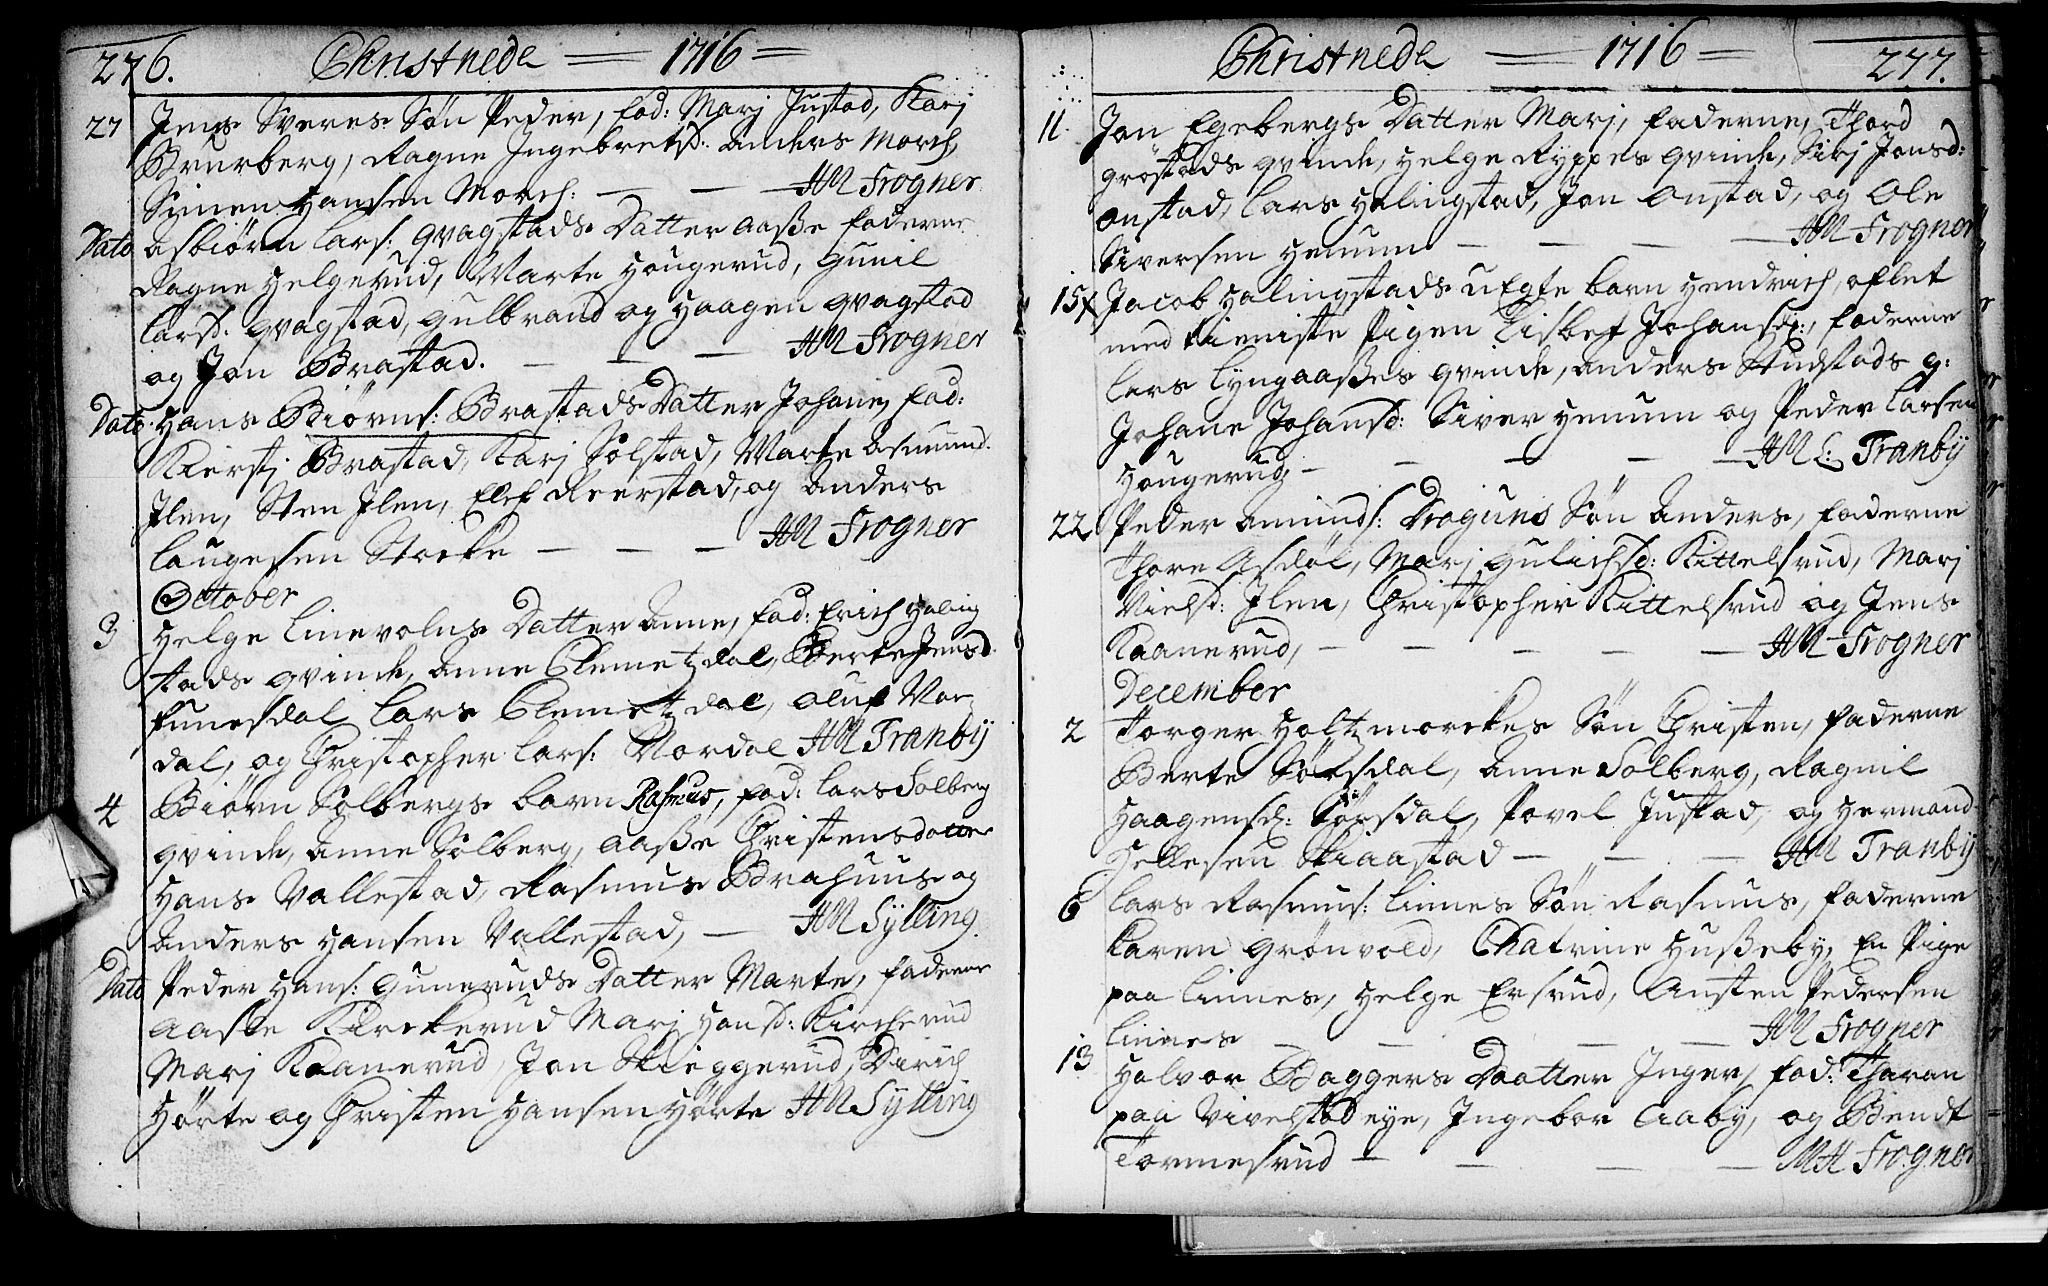 276. Christnede — 1716 —
27 Jens Sveres: Søn Peder, fad: Marj Justad, Karj
Brurberg, Ragne Ingebretsd: Anders Morch,
Simen Hansen Morch: — — HM Frogner
Dato Asbiørn Lars: Qvagstads Datter Aaße faderne
Ragne Helgerud, Marte Hougerud, Gunil
Larsd: Qvagstad, Gulbrand og Haagen Qvagstad
og Jon Brastad. — — — HM Frogner
Dato Hans Biørns: Brastads Datter Johane, fad:
Kierstj Brastad, Karj Solstad, Marte Asmund.
Ilen, Sten Ilen, Elef Reerstad, og Anders
Laugesen Stocke — — — HM Frogner
October
3 Helge Linevolns Datter Anne, fad: Erich Haling
stads qvinde, Anne Clemetzdal, Berte Jensd.
funesdal Lars Clemetzdal, Oluf Nor
dal, og Christopher Lars: Nordal HM Tranby
4 Biørn Solbergs barn Rasmus, fad: Lars Solberg
qvinde, Anne Solberg, Aaße Christensdatter
Hans Vallestad, Rasmus Brahuus og
Anders Hansen Vallestad, — HM Sylling.
Dato Peder Hans: Guneruds Datter Marte, faderne
Aaste Kirckerud Marj Hansd: Kircherud
Marj Kaanerud, Jon Skieggerud, Dirich
Hørte og Christen Hansen Hørte HM Sylling
Christnede — 1716 — 277.
11. Jon Egebergs Datter Marj, faderne, Thord
Grøstads qvinde, Helge Ryppes qvinde, Sirj Jonsd:
Onstad, Lars Halingstad, Jon Onstad, og Ole
Siversen Henum — — — — HM Frogner
15 Jacob Halingstads uEgte barn Hendrich, aflet
med tieniste Pigen Lisbet Johansd:, faderne
Lars Lyngaaßes qvinde, Anders Studstads q:
Johane Johansd: Siver Henum og Peder Larsen
Hougerud, — — — — HM L: Tranby
22 Peder Amunds: Draguns Søn Anders, faderne
Thore Asdøl, Marj Gulichsd: Kittelsrud, Marj
Nielsd: Ilen, Christopher Kittelsrud og Jens
Kaanerud, — — — — HM Frogner
December
2 Torger Holtzmorckes Søn Christen, faderne
Berte Sørsdal, Anne Solberg, Ragnil
Haagensd: Sørsdal, Povel Justad, og Hermand
Hellesen Skiaastad — — — HM Tranby
6 Lars Rasmus: Linnes Søn Rasmus, faderne
Karen Grønvold, Chatrine Hußeby, En Pige
paa Linnes, Helge Ersrud, Ansten Pedersen
Linnes — — — — HM Frogner
13 Halvor Baggers Daatter Inger, fad: Tharan
paa Vivelstad eye, Ingebor Aaby, og Bendt
Tormesrud — — — — MH Frogner